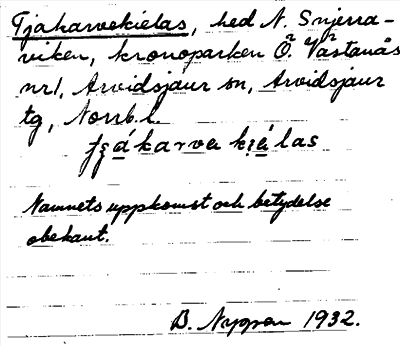 Tjakarvekielas, hed N. Snjerra-
viken, kronoparken Ö. Västanås
nr 1, Arvidsjaur sn, Arvidsjaur
tg, Norrb. l.
karva
Namnets uppkomst och betydelse
obekant.
B. Nygren 1932.